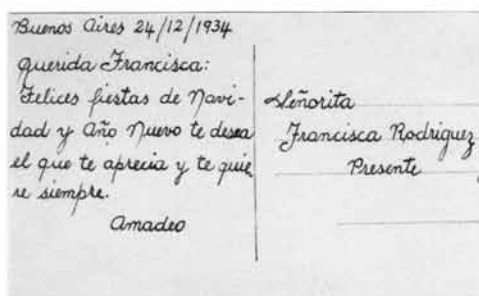 Buenos Aires 24/12/1934
Querida Francisca:
Felices fiestas de Navi-
dad y Año Nuevo te desea
el que te aprecia y te quie
re siempre.
Amadeo
Señorita
Francisca Rodriguez
Presente